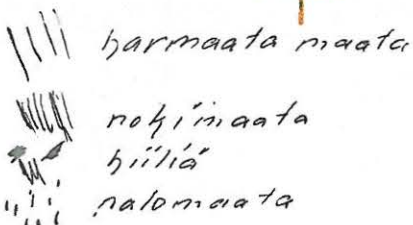 harmaata maata
nokimaata
hiiliä
palomaata